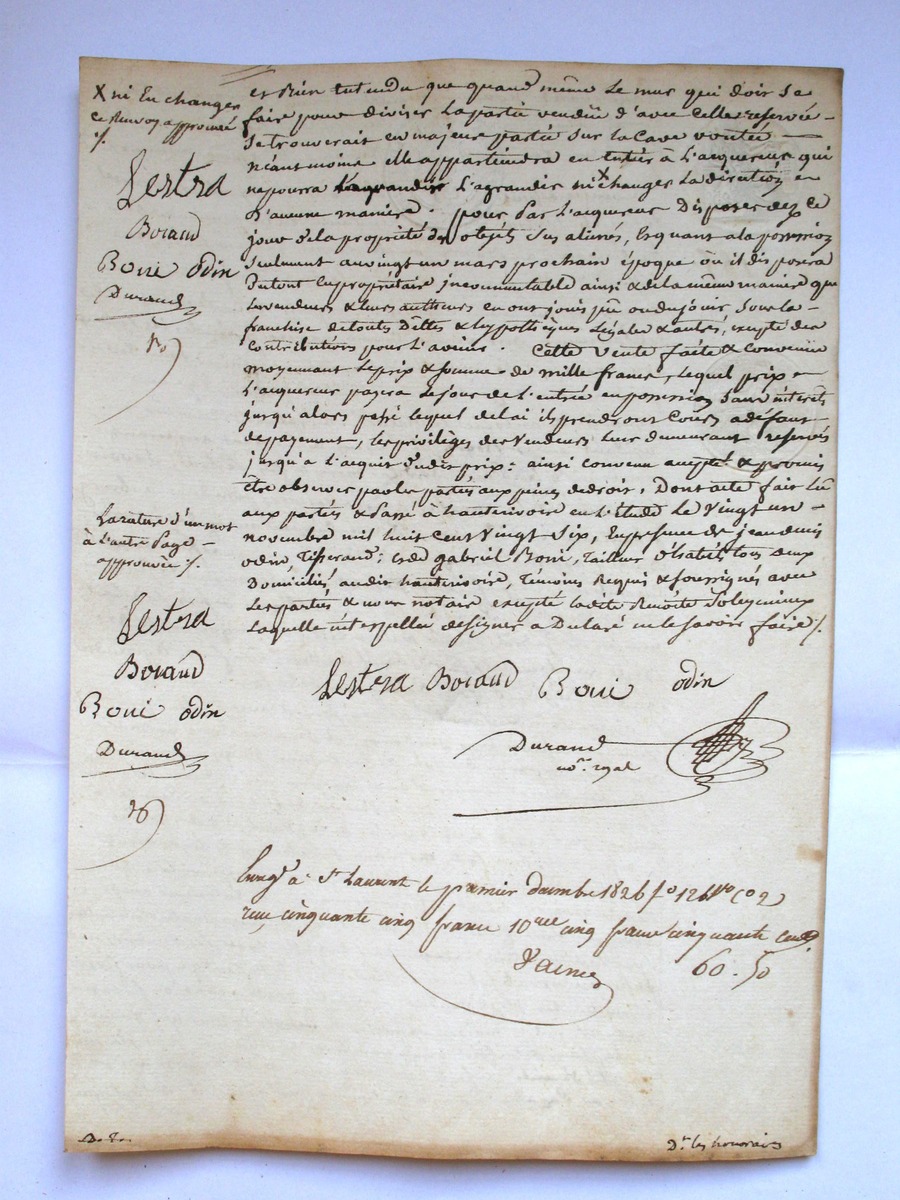 X ni En changer
ce Renvoy approuvé
./.
Lestra
Boiaud
Boui odin
Durand
est Bien Entendu que quand même Le mur qui doit Se
faire pour diviser La partie vendüe d'avec Celle reservée —
Se trouverait en majeure partie Sur la Cave voutée —
néantmoins elle appartiendra en Entier à L'acquereur qui
ne pourra L'agrandir ni X changer La direction en
D'aucune maniere . pour Par L'acquereur Disposer dez Ce
jour de la propriété des objets Sus aliénés, Et quant a la possession
Seulement au vingt un mars prochain époque où il disposera
Du tout En propriétaire incommutable ainsi & de la même maniere que
Les vendeurs & leurs autheurs en ont jouis pû ou dû jouir Sous la —
franchise de touts Dettes & hypotheques Légales & autres, excepté des
Contributions pour L'avenir . Cette vente faite & convenüe
moyennant Le prix & Somme de mille francs, Lequel prix
L'acquereur payera Le jour de L'entrée en possession Sans intérêts
jusqu'alors passé lequel delai ils prendront Cours a défaut
de payement, Les privilèges des Vendeurs Leur demeurant reservés
jusqu'a L'acquit dudit prix : ainsi convenu accepté & promis
Être observer par les parties aux peines de droit, Dont acte fait Lû
aux parties & Passé à hauterivoire en L'étude Le Vingt un —
novembre mil huit cent Vingt Six, En presence de jean denis
odin, Tisserand ; et de gabriel Boui, Tailleur d'habits tous deux
Domiciliés audit hauterivoire, Témoins Requis & Soussignés avec
Les parties & nous notaire excepté ladite Benoîte Soleymieux
Laquelle interpellée de signer a Déclaré ne le Savoir faire ./.
La rature d'un mot
à L'autre Page —
approuvée ./.
Lestra
Boiaud
Boui odin
Durand
Lestra Boiaud Boui odin
Durand
no.re royal
Enreg.é à S.t Laurent le premier decembre 1826 f.o 126 V.o C.o 2
reçu cinquante cinq francs 10.eme cinq francs cinquante cent.
60 . 50
D. T.
D.t les honoraires